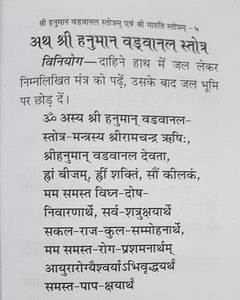 श्री हनुमान वडवानल स्तोत्रम् एवं श्री मारुति स्तोत्रम् -५
अथ श्री हनुमान वडवानल स्तोत्र
विनियोग—दाहिने हाथ में जल लेकर
निम्नलिखित मंत्र को पढ़ें, उसके बाद जल भूमि
पर छोड़ दें।
ॐ अस्य श्री हनुमान् वडवानल-
स्तोत्र-मन्त्रस्य श्रीरामचन्द्र ऋषिः,
श्रीहनुमान् वडवानल देवता,
ह्रां बीजम्, ह्रीं शक्तिं, सौं कीलकं,
मम समस्त विघ्न-दोष-
निवारणार्थे, सर्व-शत्रुक्षयार्थे
सकल-राज-कुल-सम्मोहनार्थे,
मम समस्त-रोग-प्रशमनार्थम्
आयुरारोग्यैश्वर्याऽभिवृद्धयर्थं
समस्त-पाप-क्षयार्थं